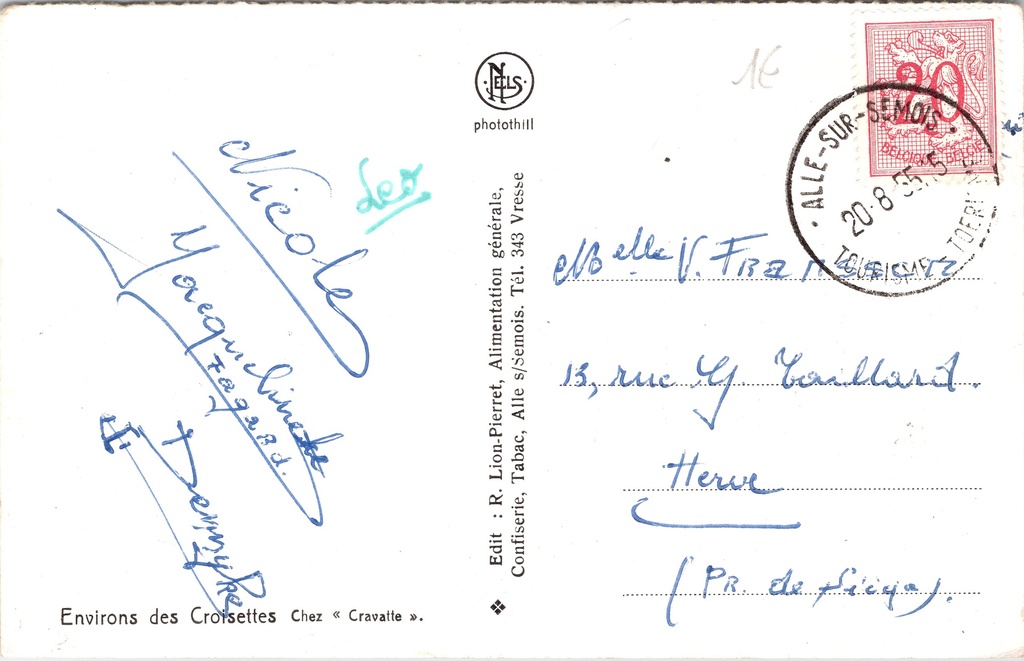 Nicole
Leo
Jacqueline
Environs des Croisettes Chez « Cravatte ».
NELS
photothill
Edit : R. Lion-Pierret, Alimentation générale,
Confiserie, Tabac, Alle s/Semois. Tél. 343 Vresse
1€
20
BELGIQUE BELGIË
ALLE-SUR-SEMOIS
20-8-55
TOURISME - TOERISME
Melle V.
13, rue G. Taillard.
Herve
(Pr. de Liège).